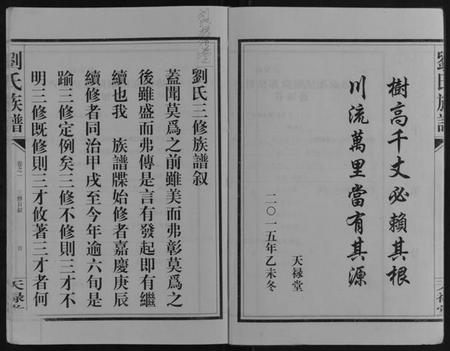 劉氏族譜
樹高千丈必賴其根
川流萬里當有其源
天禄堂
二〇一五年乙未冬
天禄堂
劉氏三修族譜叙
蓋聞莫爲之前雖美而弗彰莫爲之
後雖盛而弗傳是言有發起即有繼
續也我 族譜牒始修者嘉慶庚辰
續修者同治甲戌至今年逾六旬是
踰三修定例矣三修不修則三才不
明三修既修則三才攸著三才者何
劉氏族譜
卷之一
天禄堂